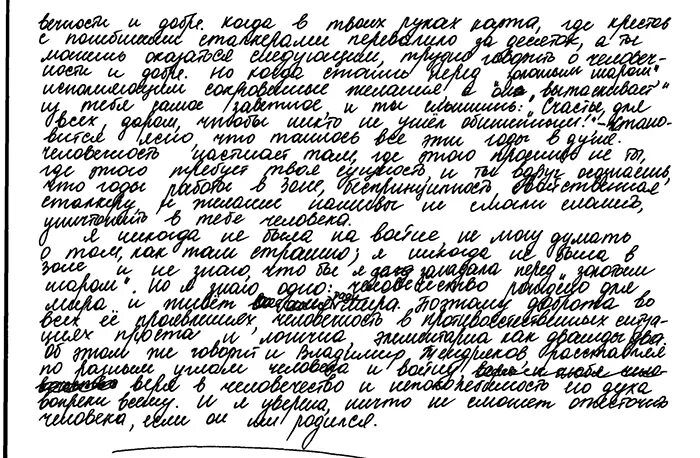 вечности и добре. когда в твоих руках карта, где крестов
с погибшими сталкерами перевалило за десяток, а ты
можешь оказаться следующим, трудно говорить о человеч-
ности и добре. Но когда стоишь перед "золотым шаром"
исполняющим сокровенные желания, а "он" "вытаскивает"
из тебя самое заветное, и ты слышишь: "Счастье для
всех, даром, чтобы никто не ушёл обиженным!" - стано-
вится ясно, что таилось все эти годы в душе.
человечность настигает там, где этого просишь не ты,
где этого требует твоя сущность, и ты вдруг осознаешь,
что годы работы в Зоне, беспринципность, свойственная
сталкеру и желание наживы не смогли сломить,
уничтожить в тебе человека.
Я никогда не была на войне, не могу думать
о том, как там страшно; я никогда не была в
зоне и не знаю, что бы я загадала перед "золотым
шаром". Но я знаю одно: человечество рождено для
мира и живёт ради мира. Поэтому доброта во
всех её проявлениях, человечность в противоестественных ситуа-
циях проста и логична, элементарна как дважды два.
Об этом же говорит и Владимир Тендряков расставляя
по разным углам человека и войну,
веря в человечество и непоколебимость его духа
вопреки всему. И я уверена, ничто не сможет ожесточить
человека, если он им родился.